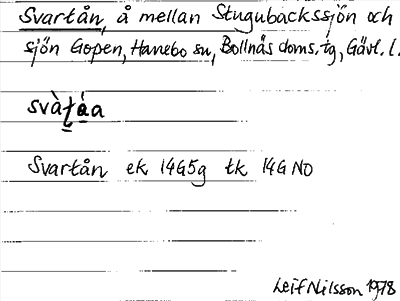 Svartån, å mellan Stugubäckssjön och
sjön Gopen, Hanebo sn, Bollnäs doms. tg, Gävl. l.
svàt̠á̠a
Svartån ek 14G5g tk 14G NO
Leif Nilsson 1978